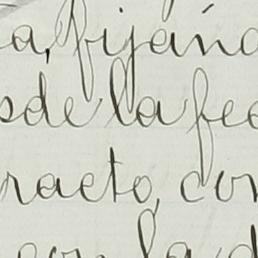 a, fijánd
sde la fec
racto, con